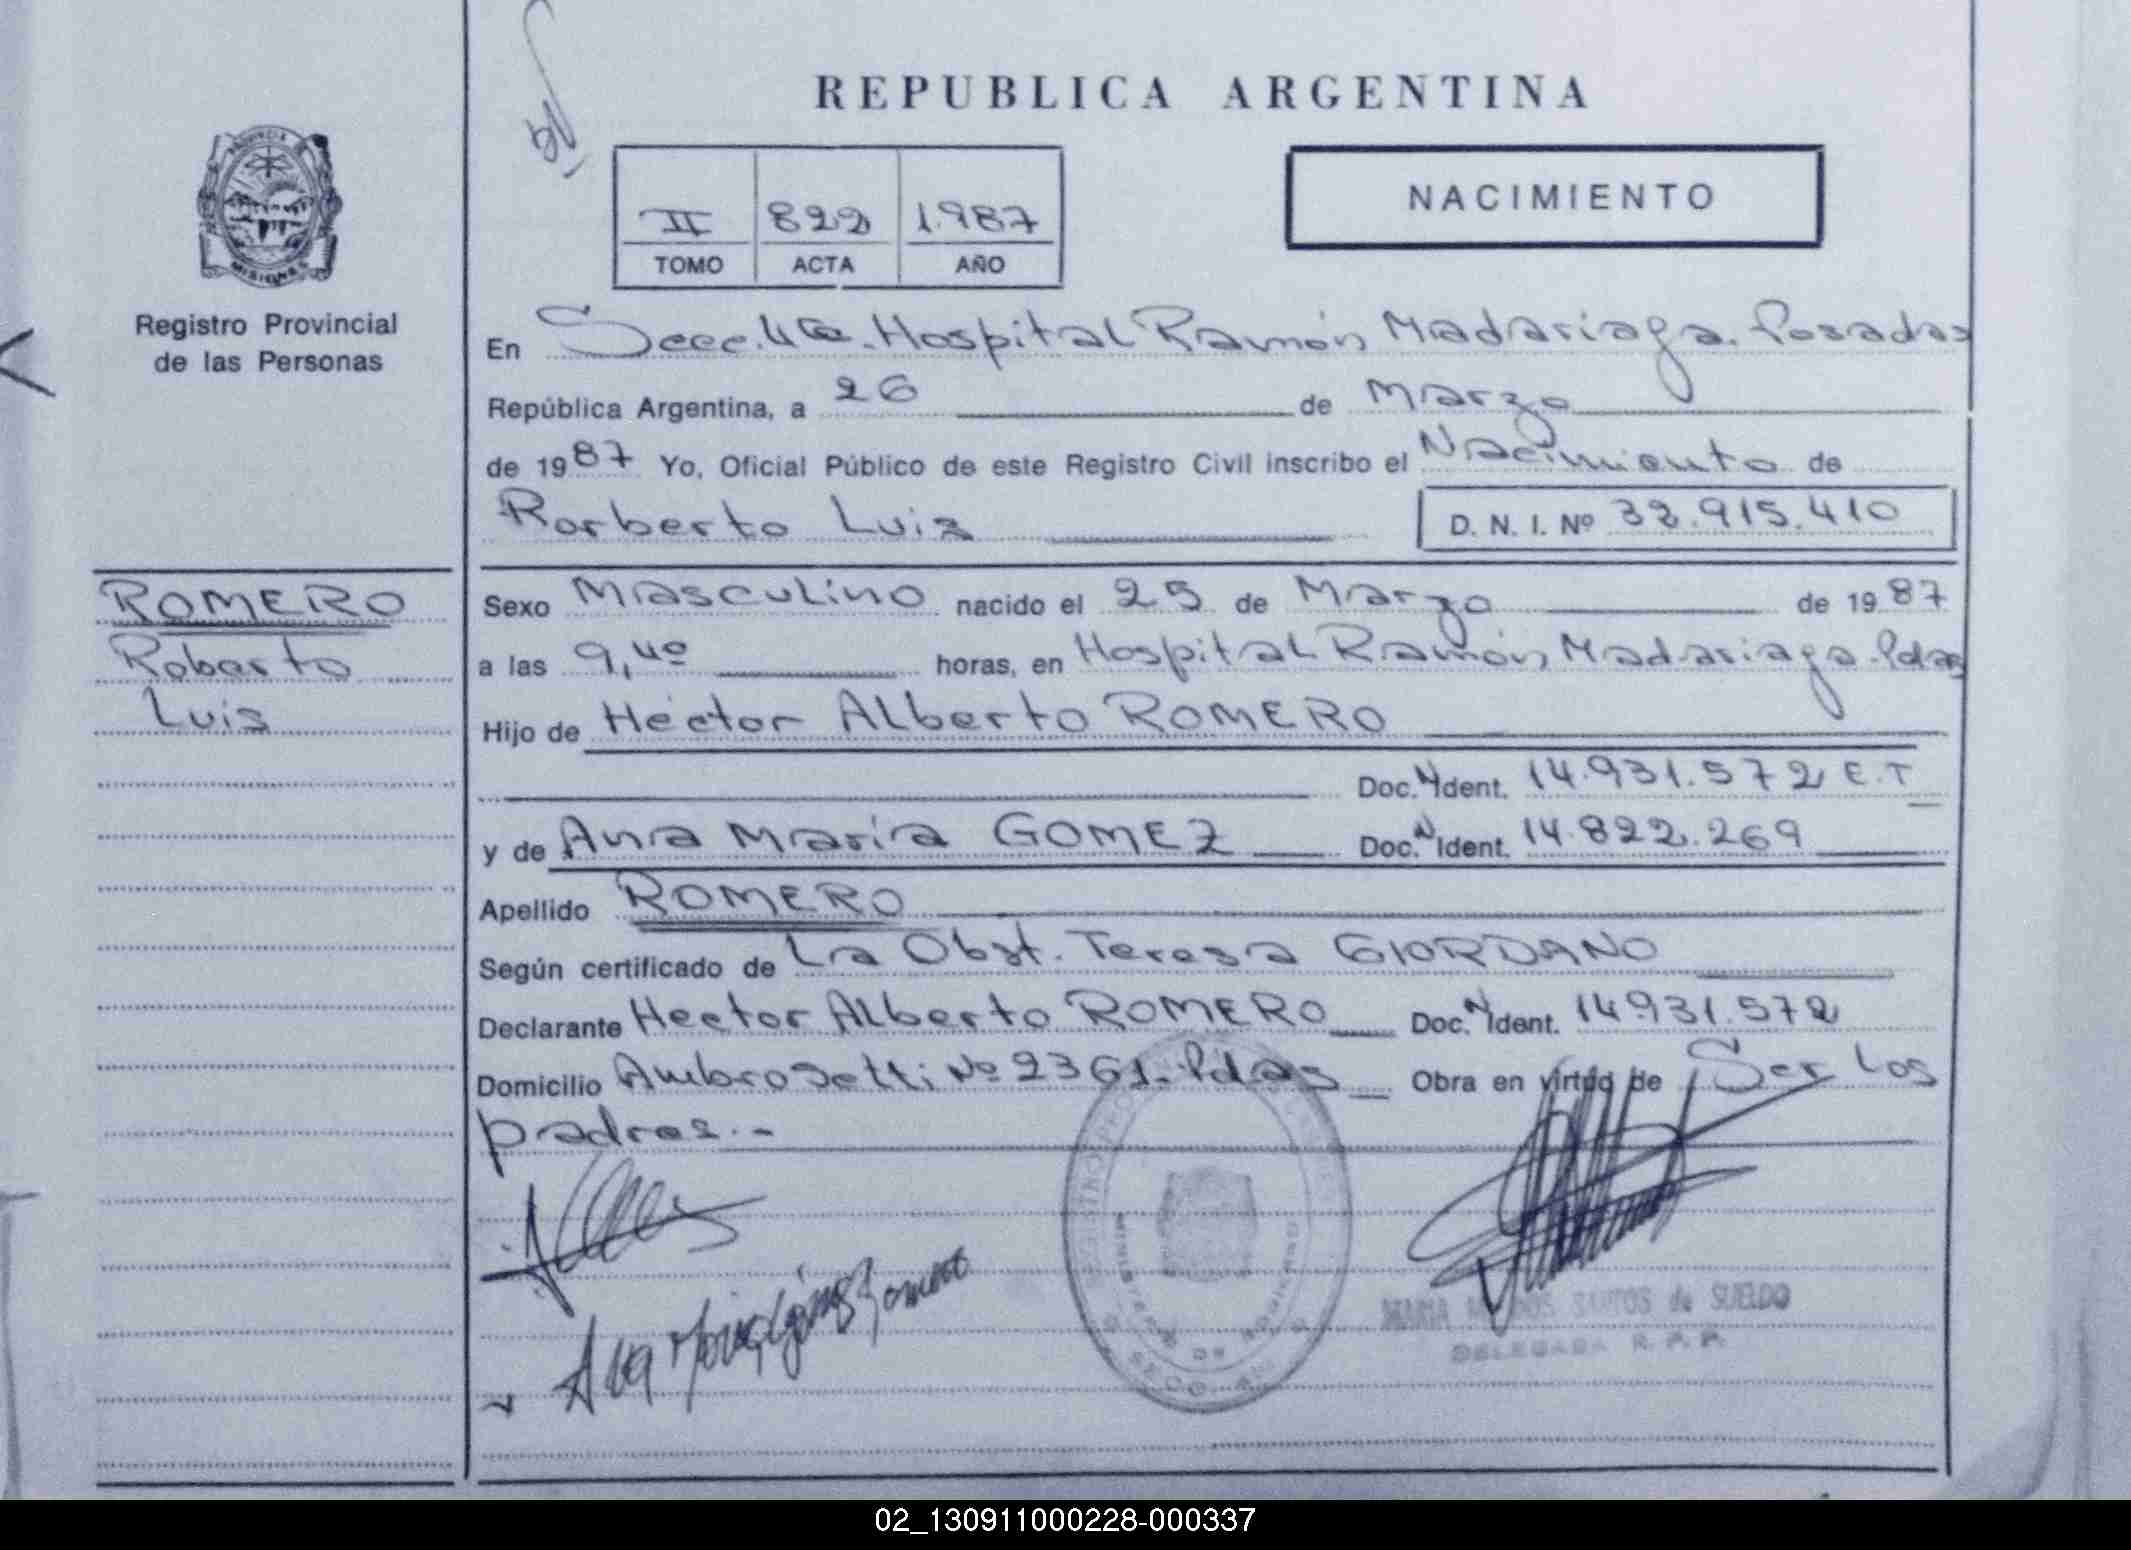 REPUBLICA ARGENTINA
NACIMIENTO
II 822 1.987
TOMO ACTA AÑO
PROVINCIA DE
MISIONES
Registro Provincial
de las Personas
En Secc. 4ta. Hospital Ramón Madariaga. Posadas
República Argentina, a 26 de Marzo
de 1987 Yo, Oficial Público de este Registro Civil inscribo el Nacimiento de
Rorberto Luis D. N. I. Nº 32.915.410
ROMERO
Roberto
Luis
Sexo Masculino nacido el 25 de Marzo de 1987
a las 9,40 horas, en Hospital Ramón Madariaga. Pdas
Hijo de Héctor Alberto ROMERO
Doc. N Ident. 14.931.572 E.T
y de Ana María GOMEZ Doc. N Ident. 14.822.269
Apellido ROMERO
Según certificado de La Obst. Teresa GIORDANO
Declarante Hector Alberto ROMERO Doc. N Ident. 14931.572
Domicilio Ambrosetti Nº 2361. Pdas Obra en virtud de Ser los
padres.-
Ana María Gomez
MARIA SANTOS de SUELDO
DELEGADA R. P. P.
02_130911000228-000337